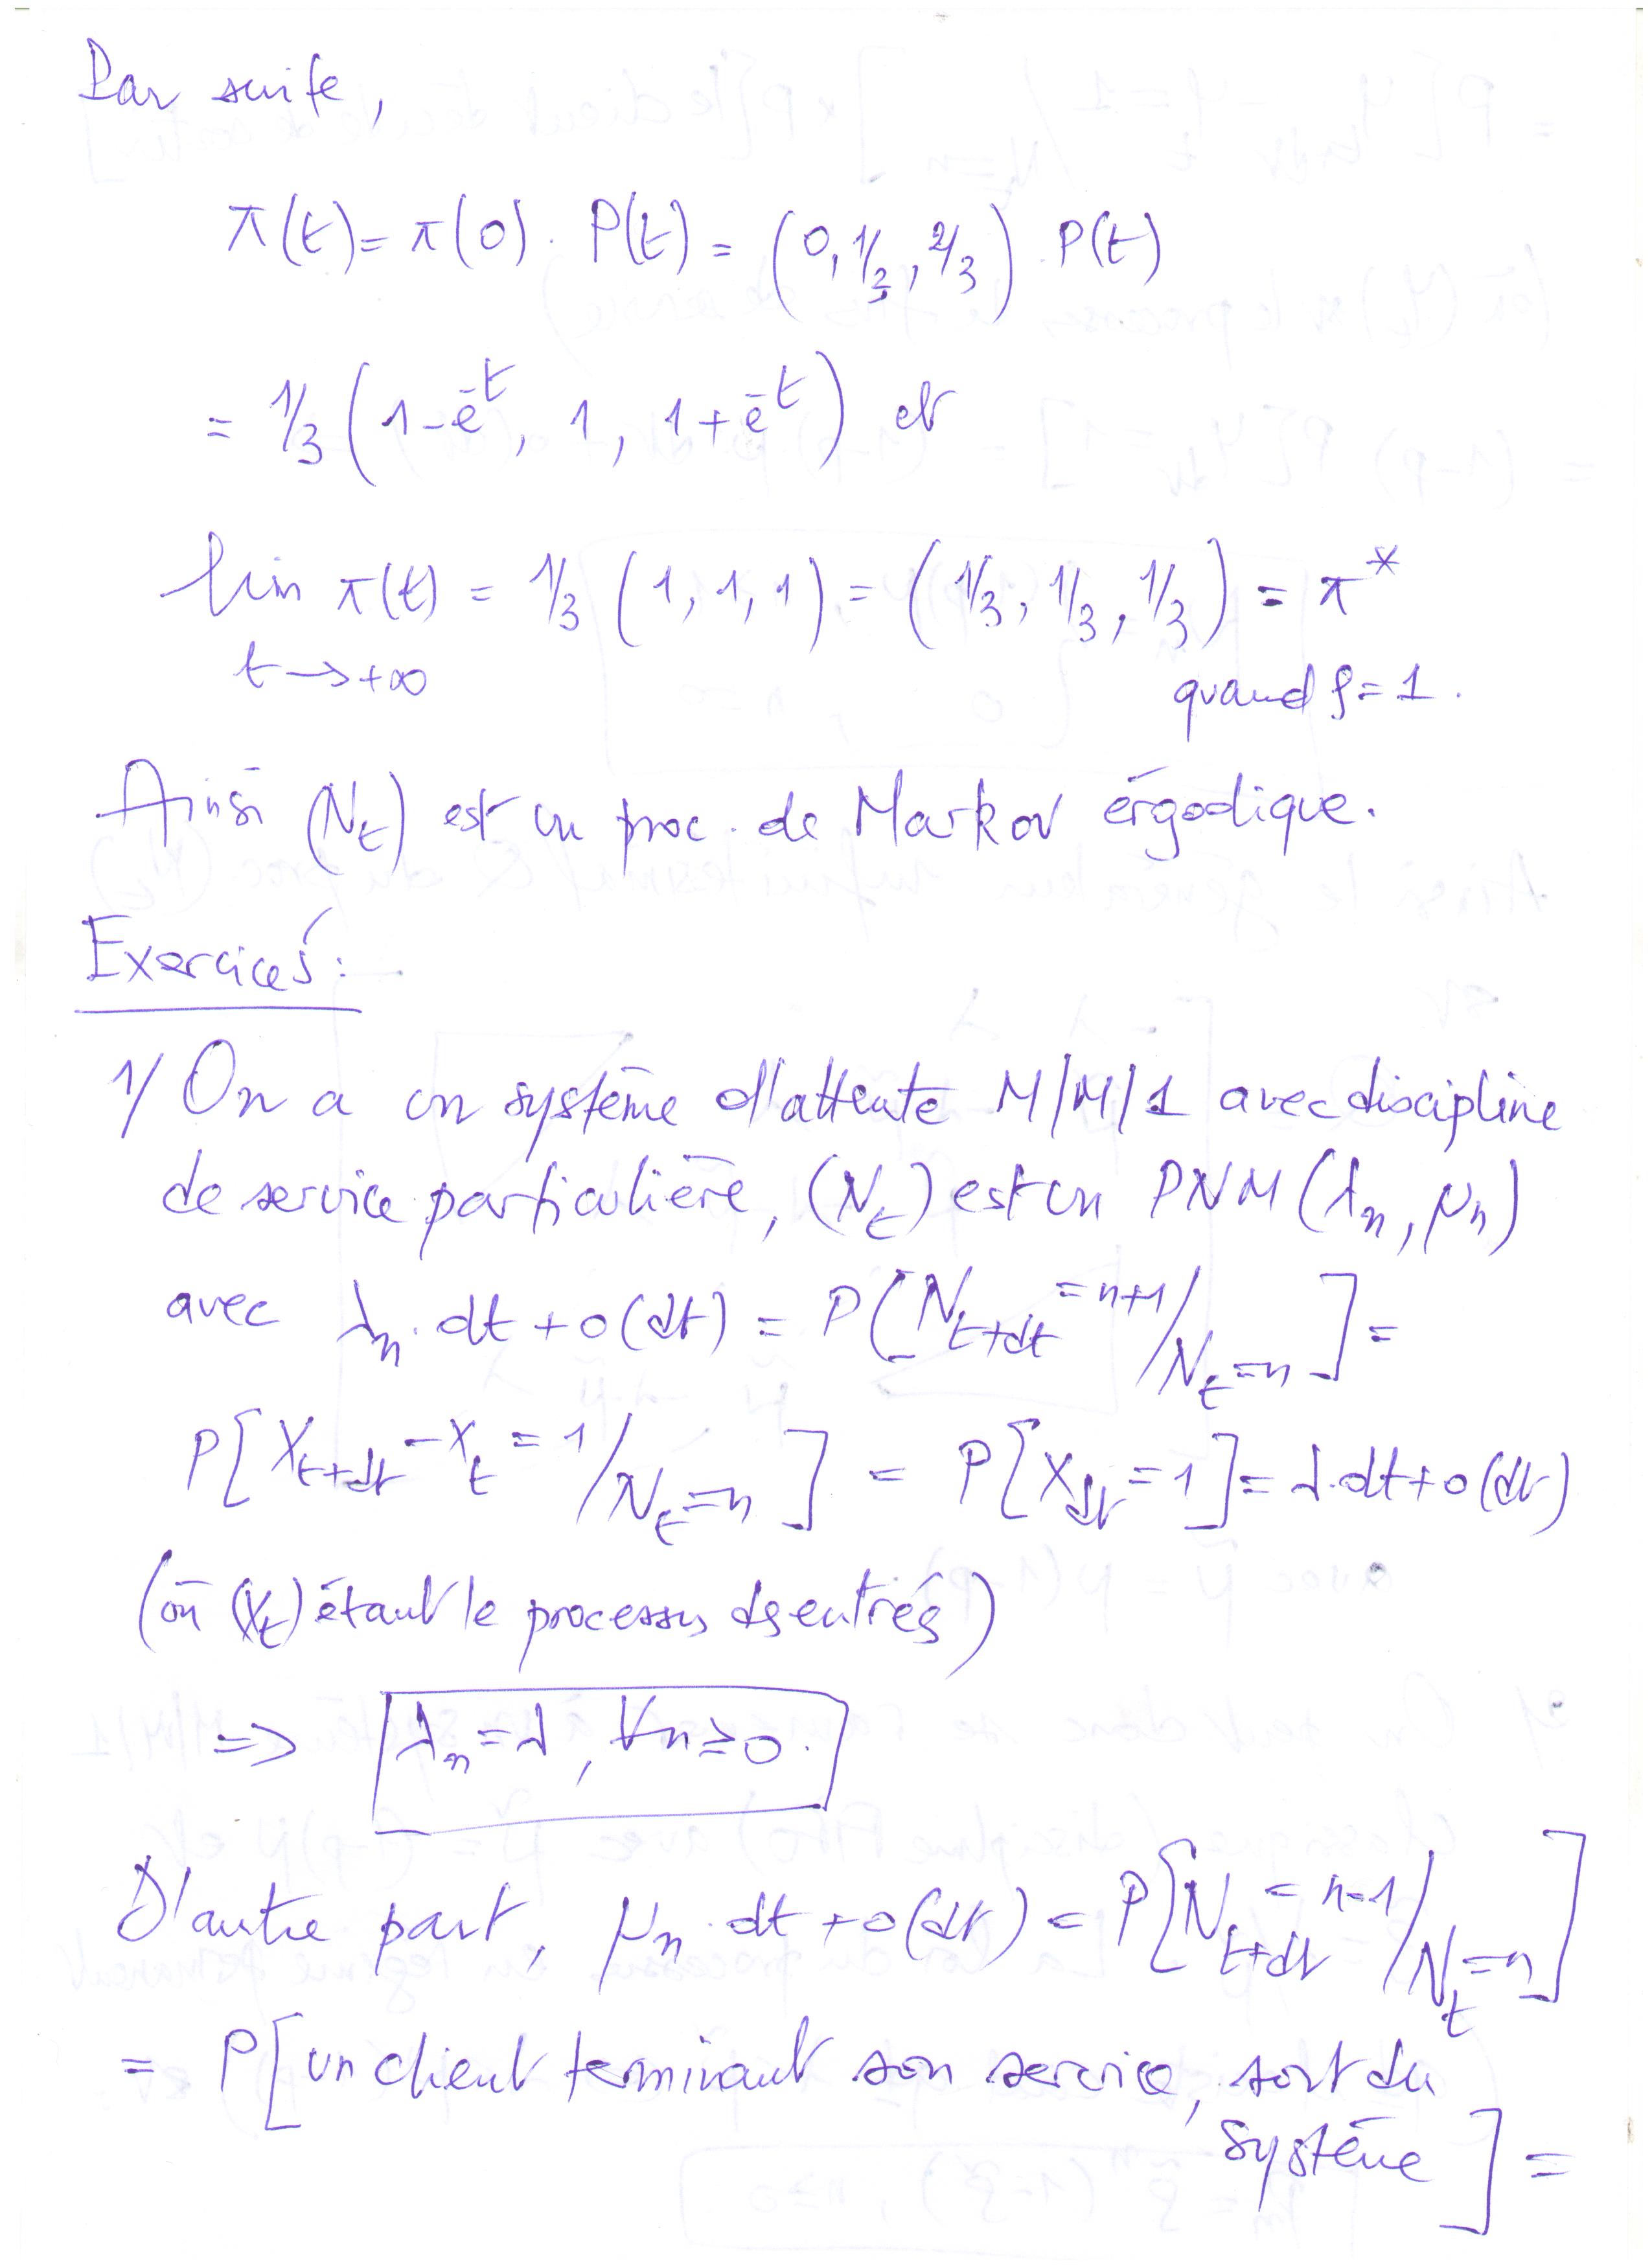 Par suite,
π(t) = π(0) . P(t) = (0, 1/3, 2/3) . P(t)
= 1/3 (1 - e^-t, 1, 1 + e^-t) et
lim π(t) = 1/3 (1, 1, 1) = (1/3, 1/3, 1/3) = π*
t → +∞ quand ρ = 1.
Ainsi (N_t) est un proc. de Markov érgodique.
Exercices:
1/ On a un système d'attente M/M/1 avec discipline
de service particulière, (N_t) est un PNM (λ_n, μ_n)
avec λ_n . dt + o(dt) = P[N_t+dt = n+1 / N_t = n] =
P[X_t+dt - X_t = 1 / N_t = n] = P[X_dt = 1] = λ.dt + o(dt)
(où (X_t) étant le processus des entrés)
=> λ_n = λ, ∀n ≥ 0.
D'autre part, μ_n . dt + o(dt) = P[N_t+dt = n-1 / N_t = n]
= P[un client terminant son service, sort du
système] =